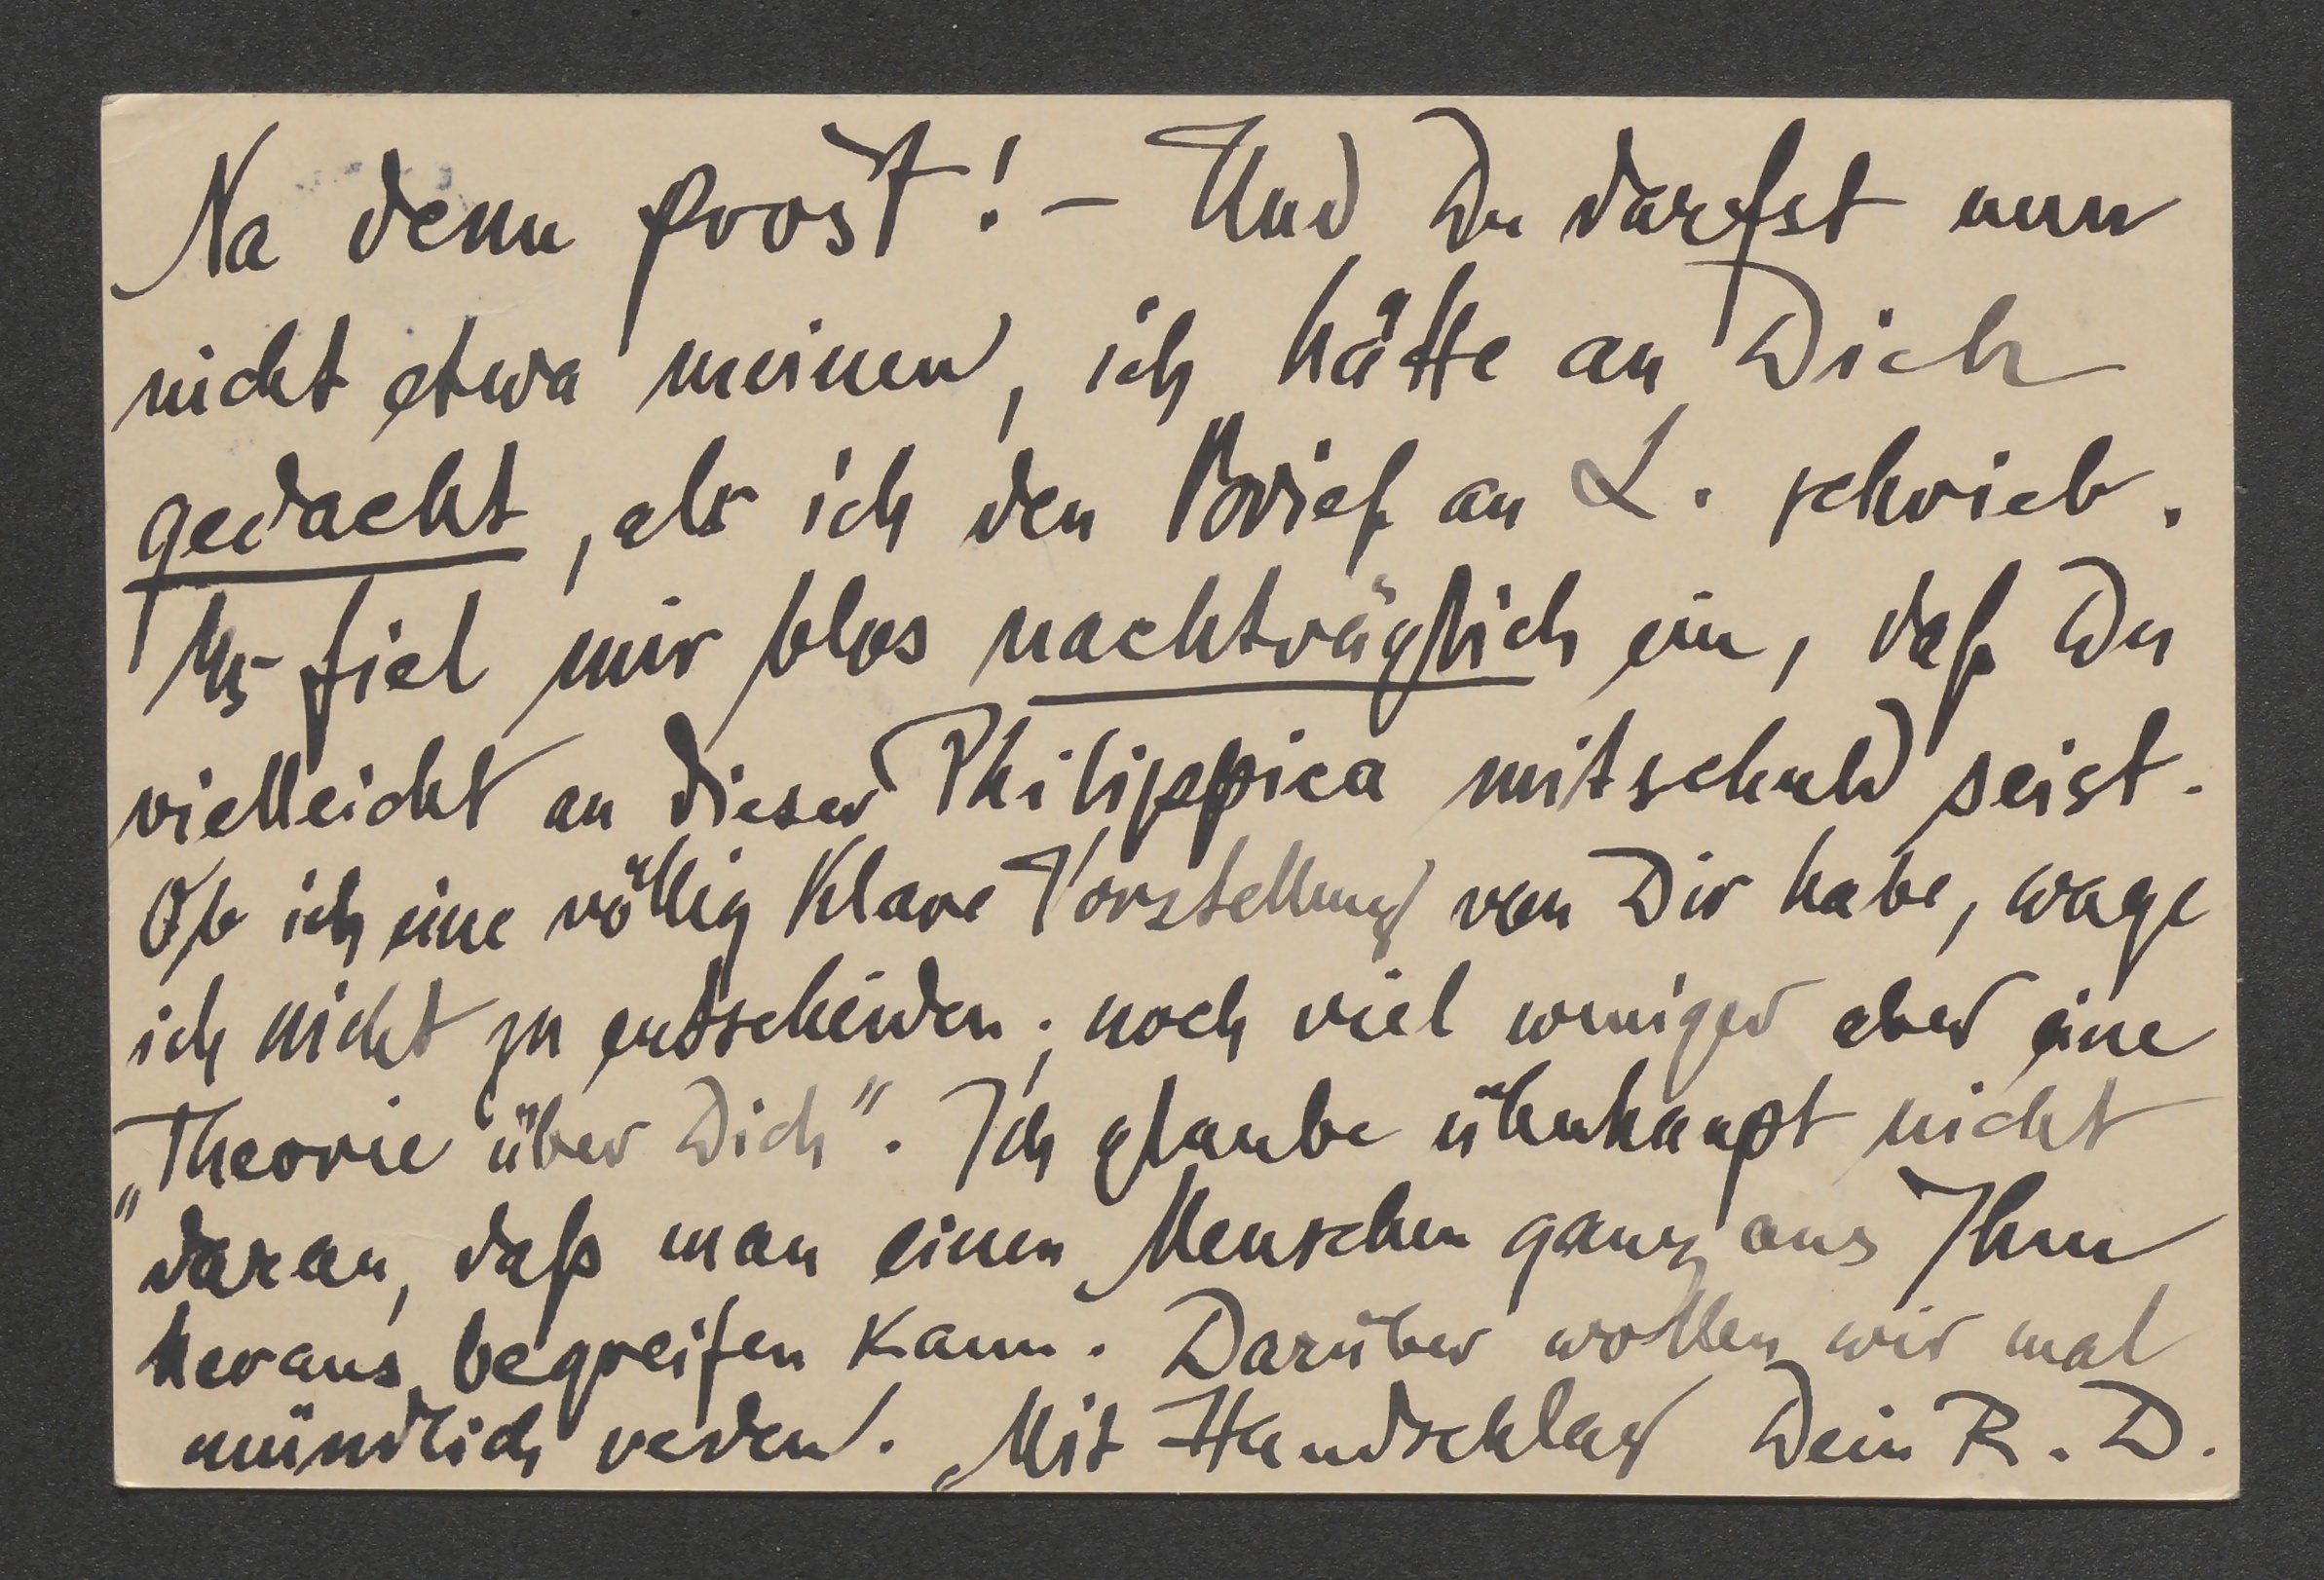 Na denn prost! – Und Du darfst nun
nicht etwa meinen, ich hätte an Dich
gedacht, als ich den Brief an L. schrieb.
Es fiel mir blos nachträglich ein, daß Du
vielleicht an dieser Philippica mitschuld seist.
Ob ich eine völlig klare Vorstellung von Dir habe, wage
ich nicht zu entscheiden; noch viel weniger aber eine
„Theorie über Dich". Ich glaube überhaupt nicht
daran, daß man einen Menschen ganz aus Ihm
heraus begreifen kann. Darüber wollen wir mal
mündlich reden. Mit Handschlag Dein R. D.